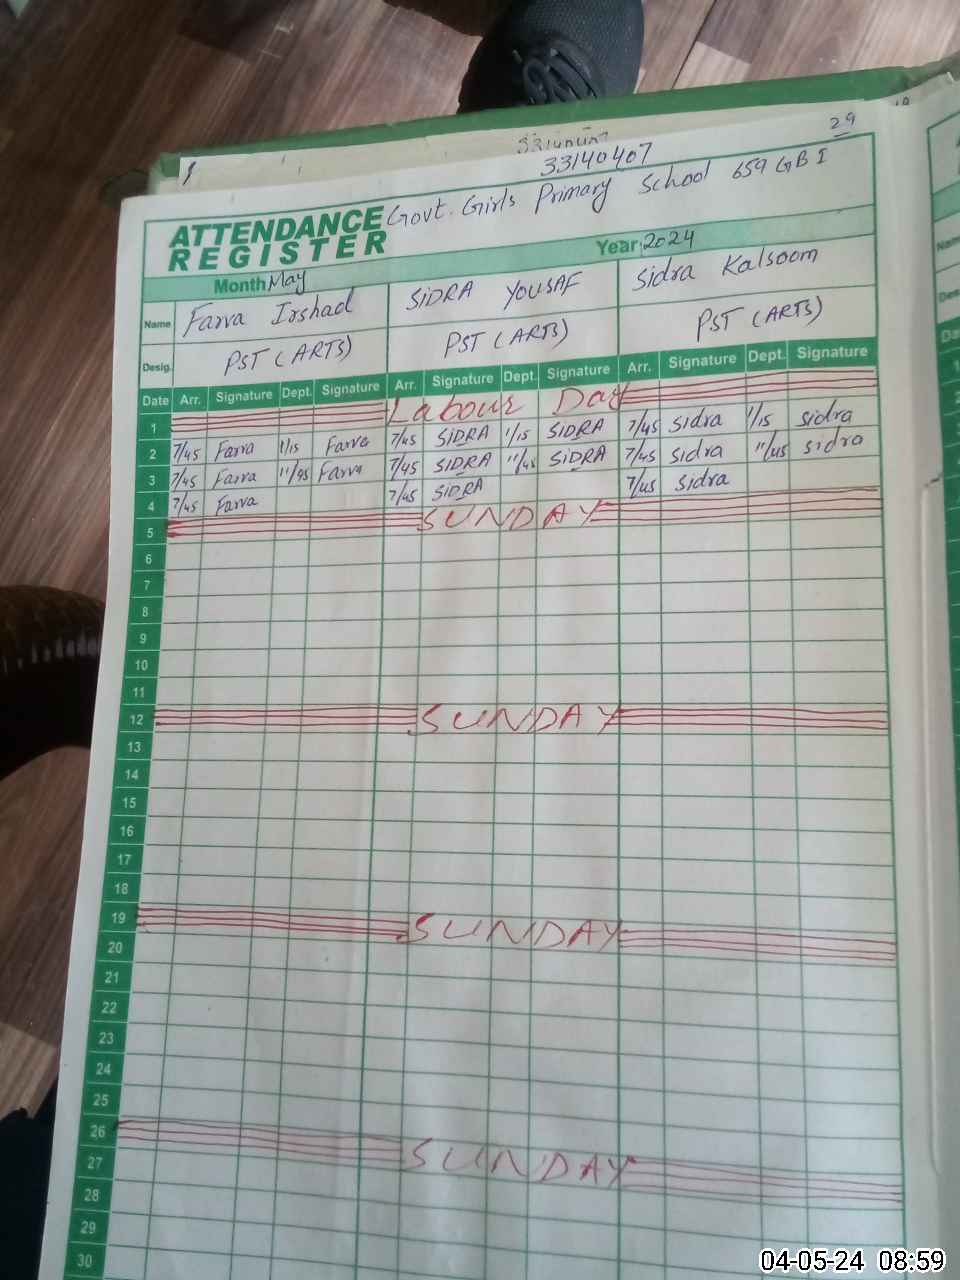 33140407
29
Govt. Girls Primary School 659 GB I
ATTENDANCE
REGISTER
Month May Year 2024
Name Farva Irshad SIDRA YOUSAF Sidra Kalsoom
Desig. PST (ARTS) PST (ARTS) PST (ARTS)
Date Arr. Signature Dept. Signature Arr. Signature Dept. Signature Arr. Signature Dept. Signature
1 Labour Day
2 7/45 Farva 1/15 Farva 7/45 SIDRA 1/15 SIDRA 7/45 Sidra 1/15 Sidra
3 7/45 Farva 11/45 Farva 7/45 SIDRA 11/45 SIDRA 7/45 Sidra 11/45 Sidra
4 7/45 Farva 7/45 SIDRA 7/45 Sidra
5 SUNDAY
6
7
8
9
10
11
12 SUNDAY
13
14
15
16
17
18
19 SUNDAY
20
21
22
23
24
25
26 SUNDAY
27
28
29
30
04-05-24 08:59